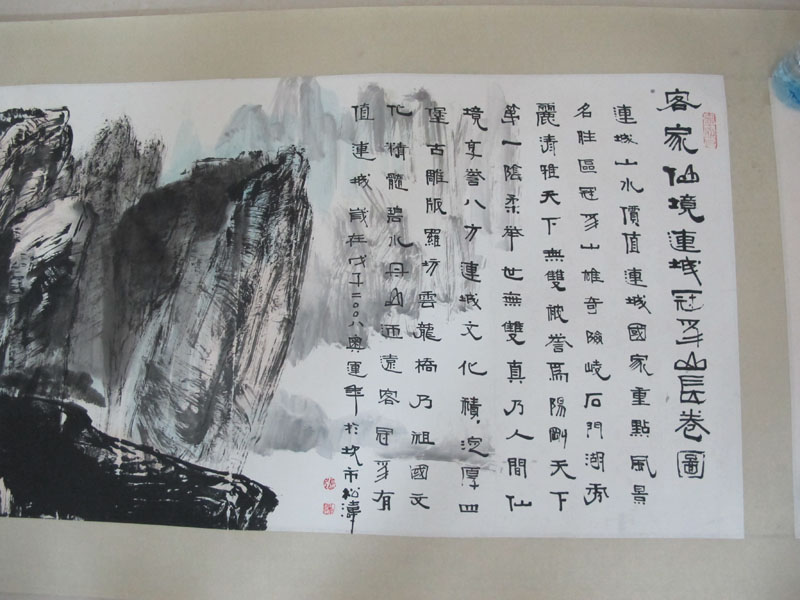 客家仙境連城冠豸山長卷圖
連城山水價值連城國家重點風景
名胜區冠豸山雄奇險峻石門湖秀
麗清雅天下無雙被誉爲陽剛天下
第一陰柔舉世無雙真乃人間仙
境享誉八方連城文化積淀厚四
堡古雕版羅坊雲龍橋乃祖國文
化精髓碧水丹山迊遠客冠豸有
值連城歲在戊子二〇〇八奥運年於坎市松濤